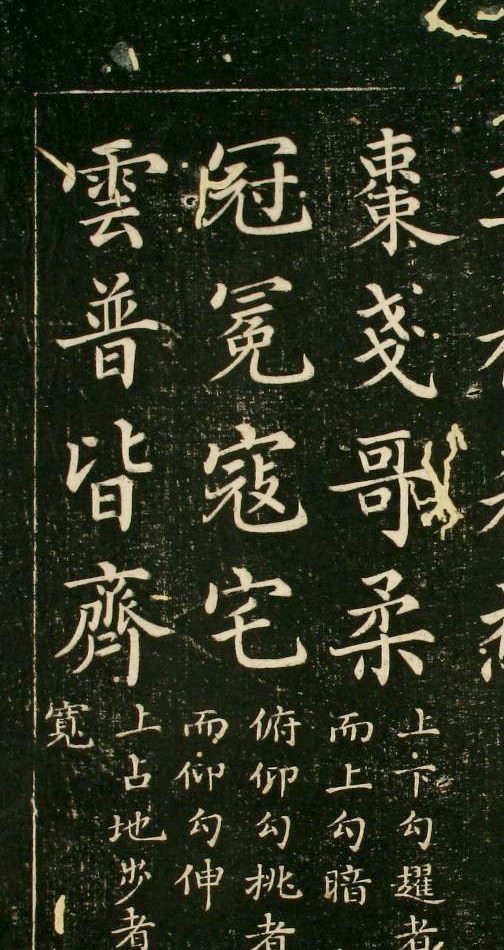 棗戔哥柔
上下勾趯者
而上勾暗
冠冕寇宅
俯仰勾挑者
而仰勾伸
雲普皆齊
上占地步者
寬